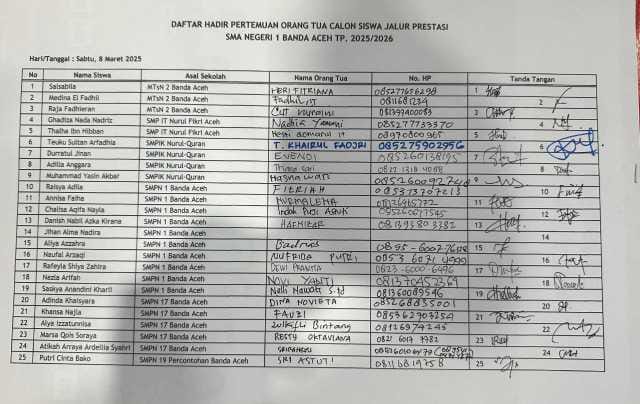 DAFTAR HADIR PERTEMUAN ORANG TUA CALON SISWA JALUR PRESTASI
SMA NEGERI 1 BANDA ACEH TP. 2025/2026
Hari/Tanggal : Sabtu, 8 Maret 2025
No Nama Siswa Asal Sekolah Nama Orang Tua No. HP Tanda Tangan
1 Salsabila MTsN 2 Banda Aceh HERI FITRIANA 085277656298 1
2 Medina El Fadhil MTsN 2 Banda Aceh 0811681234 2
3 Raja Fadhieran MTsN 2 Banda Aceh CUT 3
4 Ghadiza Nada Nadriz SMP IT Nurul Fikri Aceh Nadia 085277733370 4
5 Thalha Ibn Hibban SMP IT Nurul Fikri Aceh Heni 08970800965 5
6 Teuku Sultan Arfadhia SMPIK Nurul-Quran T. KHAIRUL FADJRI 085275902956 6
7 Durratul Jinan SMPIK Nurul-Quran EVENDI 085260138195 7
8 Adilla Anggara SMPIK Nurul-Quran 0821 1318 4088 8
9 Muhammad Yasin Akbar SMPIK Nurul-Quran Hasnawati 9
10 Raisya Adila SMPN 1 Banda Aceh FITRIAH 085373707213 10
11 Annisa Faiha SMPN 1 Banda Aceh NURMALEMA 11
12 Chalisa Aqifa Nayla SMPN 1 Banda Aceh Indah Puti 12
13 Danish Nabil Azka Kirana SMPN 1 Banda Aceh 13
14 Jihan Alma Nadira SMPN 1 Banda Aceh 14
15 Aliya Azzahra SMPN 1 Banda Aceh Badrus 15
16 Naufal Arzaqi SMPN 1 Banda Aceh NUFRIDA PUTRI 0853 6071 4999 16
17 Rafeyla Shiya Zahira SMPN 1 Banda Aceh DEWI PRAMITA 0823-6000-6496 17
18 Nezla Arifah SMPN 1 Banda Aceh NOVI YANTI 081370452369 18
19 Saskya Anandini Kharil SMPN 1 Banda Aceh Nelli Hawati S.Pd 08136089546 19
20 Adinda Khaisyara SMPN 17 Banda Aceh DINA NOVIETA 085268835001 20
21 Khansa Najla SMPN 17 Banda Aceh FAUZI 085362903254 21
22 Alya Izzatunnisa SMPN 17 Banda Aceh Bintang 08126974245 22
23 Marsa Qois Soraya SMPN 17 Banda Aceh RESTY OKTAVIANA 0821 6017 7782 23
24 Atikah Arraya Ardellia Syahri SMPN 17 Banda Aceh 24
25 Putri Cinta Bako SMPN 19 Percontohan Banda Aceh SRI ASTUTI 08116819758 25